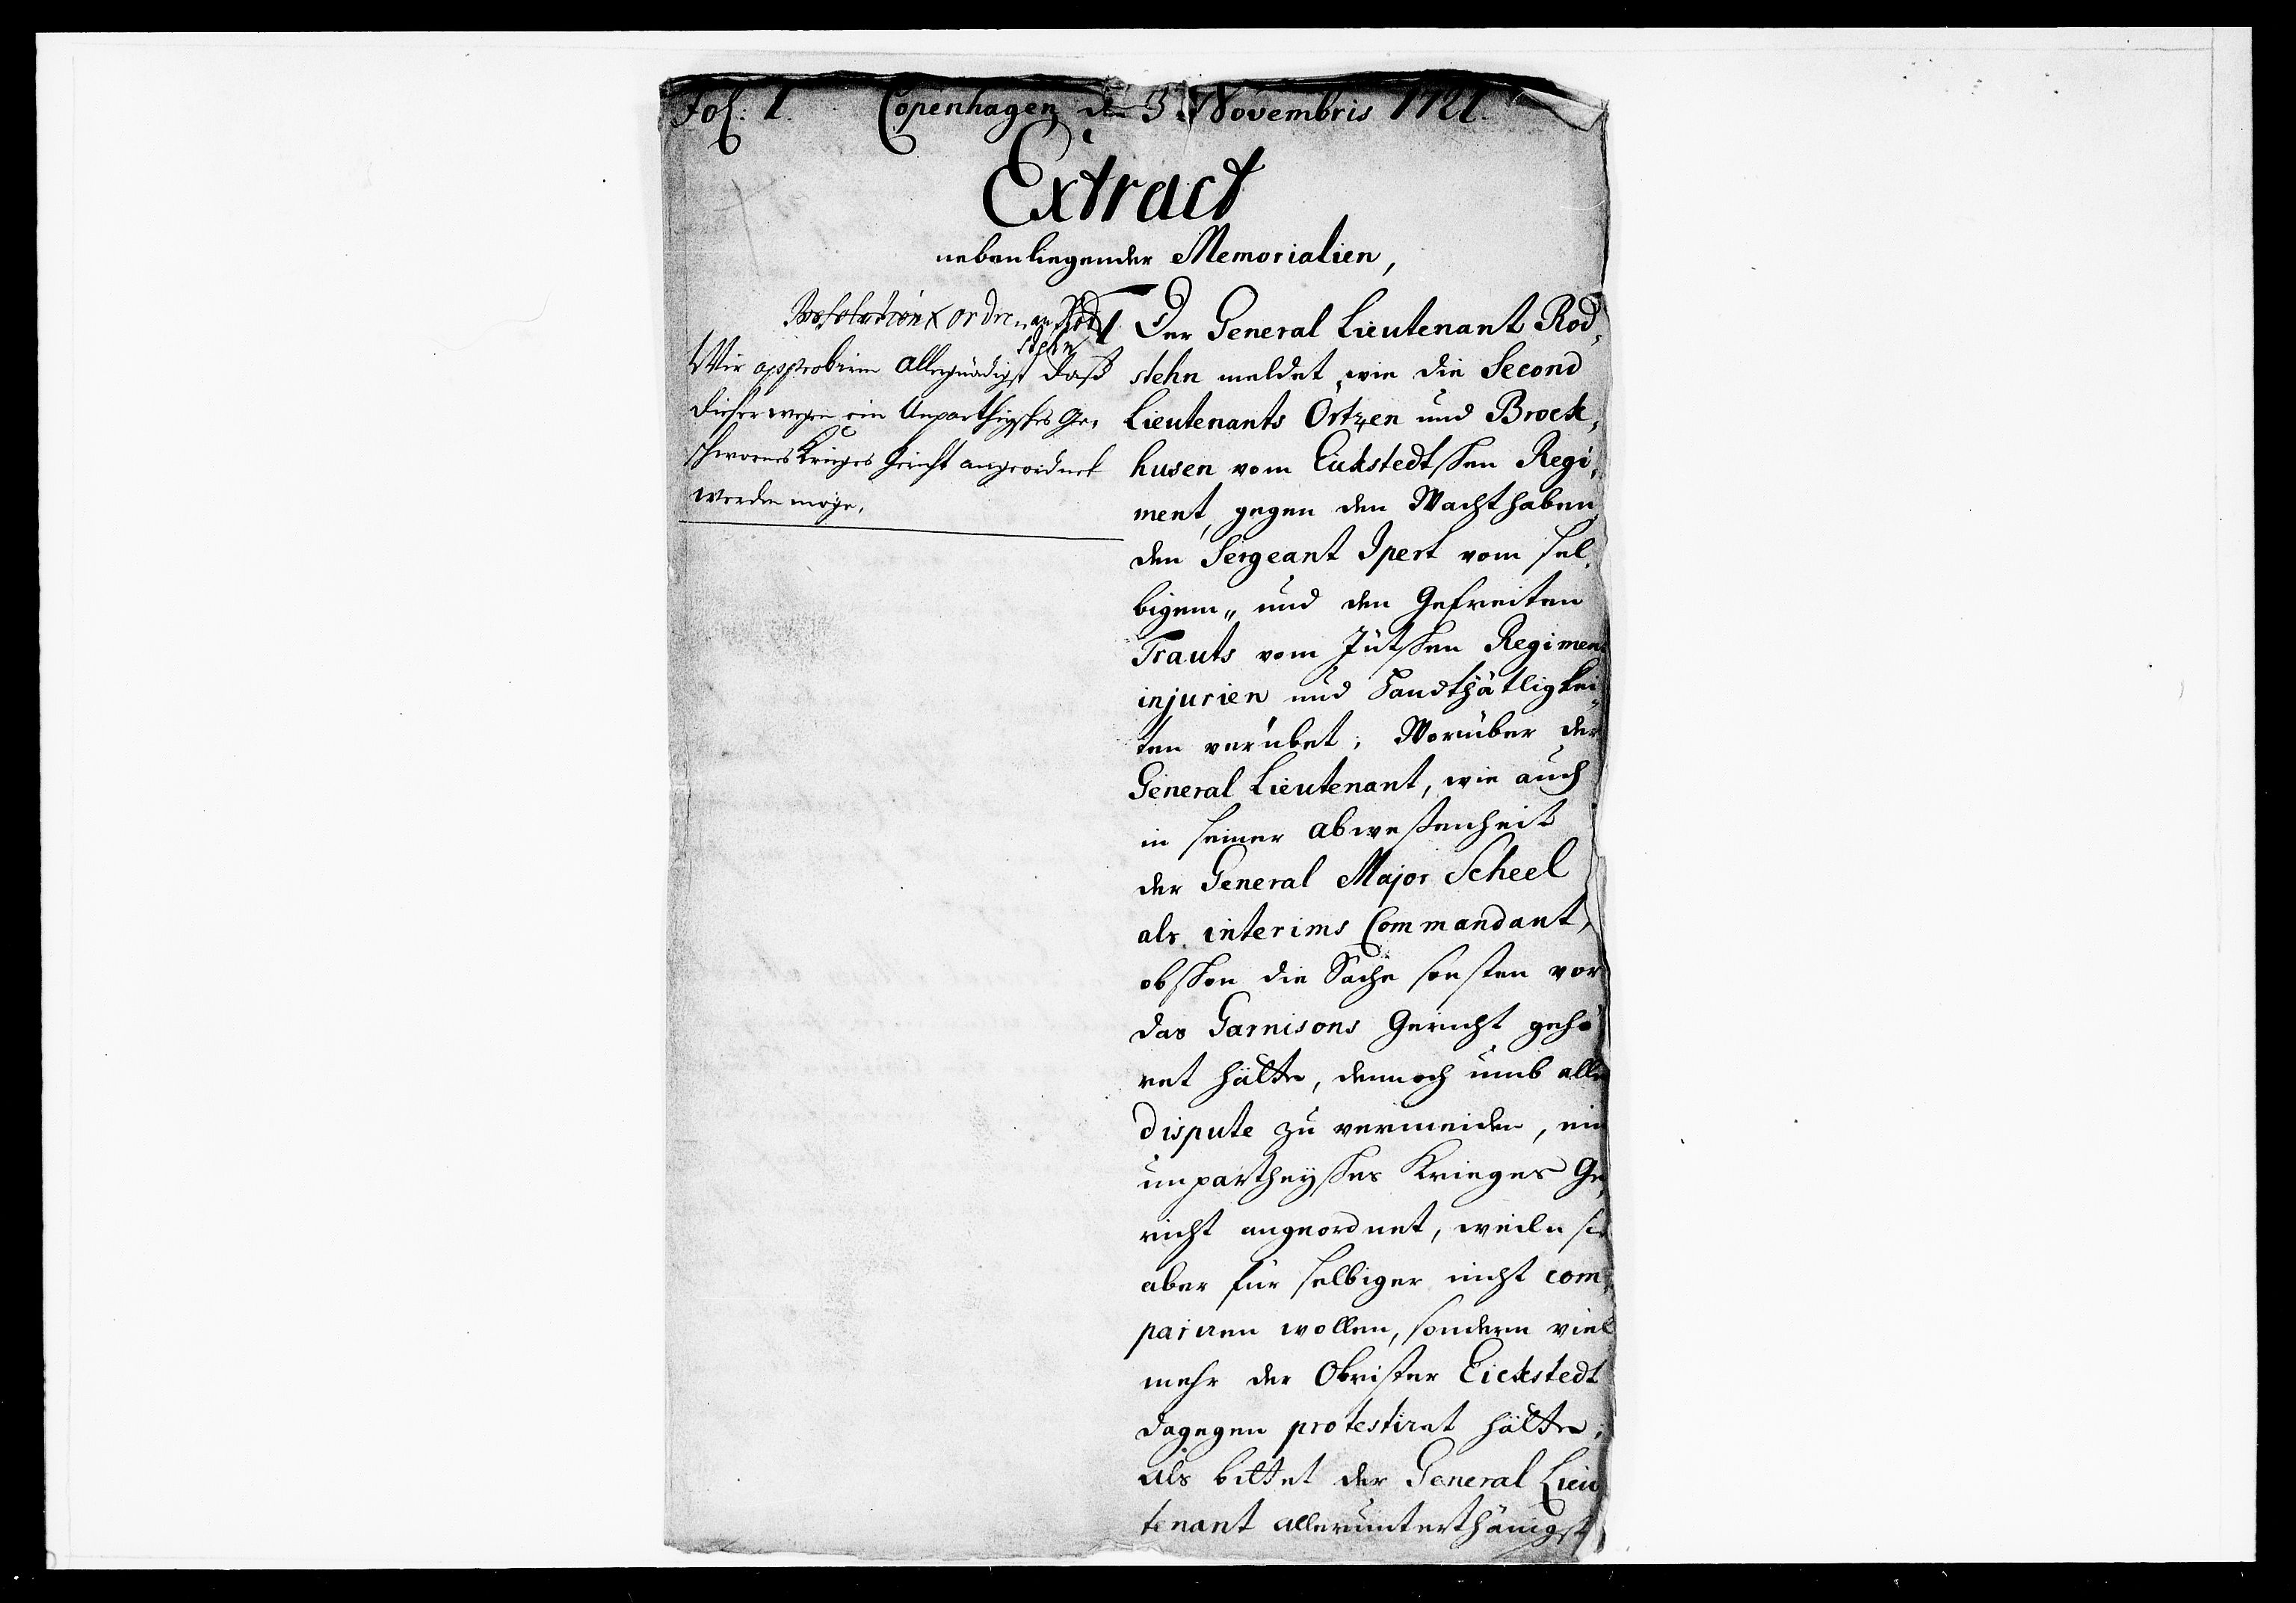 Fol: 1. Copenhagen d. 3. Novembris 1721.
Extract
nebenliegender Memorialien,
Resolution x ordre an Rod
stehn
Wir approbiren Allergnädigst daß
dieser wegen ein Unpartheysches Ge,
schwornes Krieges Gericht angeordnet
werden möge.
1. Der General Lieutenant Rod,
stehn meldet, wie die Second
Lieutenants Örtzen und Brock,
husen vom Eickstedtschen Regi,
ment, gegen den Wachthaben,
den Sergeant Ipert vom sel,
bigem„ und den Gefreiten
Trauts vom Jütschen Regiment
injurien und Handthätligkei,
ten verübet; Worüber der
General Lieutenant, wie auch
in seiner abwesenheit
der General Major Scheel
als interims Commandant,
obschon die Sache sonsten vor
das Garnisons Gericht gehö
ret hätte, dennoch umb alle
dispute zu vermeiden, ein
unpartheysches Krieges Ge,
richt angeordnet, weiln sie
aber für selbiger nicht com,
pariren wollen, sondern viel
mehr der Obrister Eickstedt
dagegen protestiret hätte;
Als bittet der General Lieu
tenant allerunterthänigst,